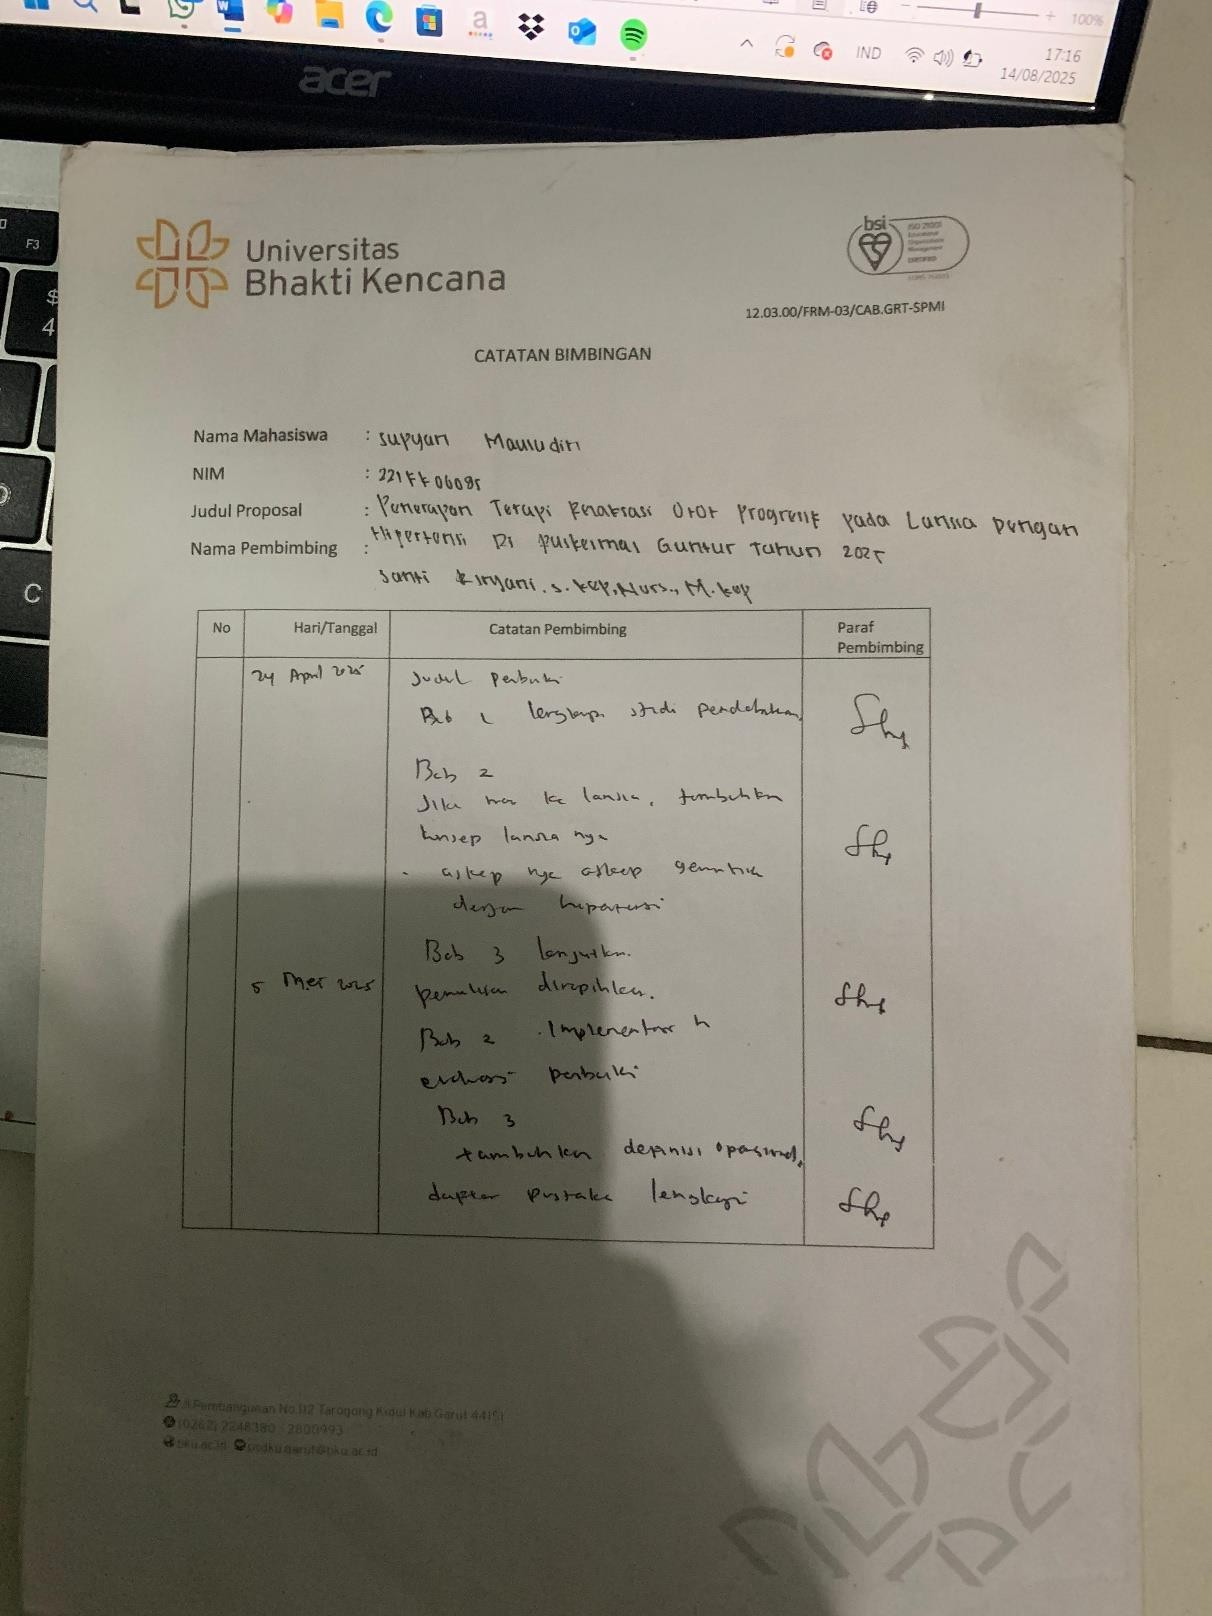 100%
IND
17:16
14/08/2025
acer
F3
$
4
C
Universitas
Bhakti Kencana
bsi
ISO 21001
CERTIFIED
12.03.00/FRM-03/CAB.GRT-SPMI
CATATAN BIMBINGAN
Nama Mahasiswa : Supyan Mauludin
NIM : 221FF06085
Judul Proposal : Penerapan Terapi Relaksasi Otot Progresif pada Lansia Dengan
Hipertensi Di Puskesmas Guntur Tahun 2025
Nama Pembimbing :
Santi S.Kep, Nurs., M.Kep
No Hari/Tanggal Catatan Pembimbing Paraf
Pembimbing
24 April 2025 Judul perbaiki
Bab 1 lengkapi studi pendahuluan
Bab 2
Jika ke lansia, tambahkan
konsep lansia nya
- askep nya askep gerontik
dengan hipertensi
Bab 3 lanjutkan.
5 Mei 2025 penulisan dirapihkan.
Bab 2 . Implementasi
evaluasi perbaiki
Bab 3
tambahkan definisi operasional,
daftar pustaka lengkapi
Jl.Pembangunan No.112 Tarogong Kidul Kab.Garut 44151
(0262) 2248380 - 2800993
bku.ac.id psdku.garut@bku.ac.id